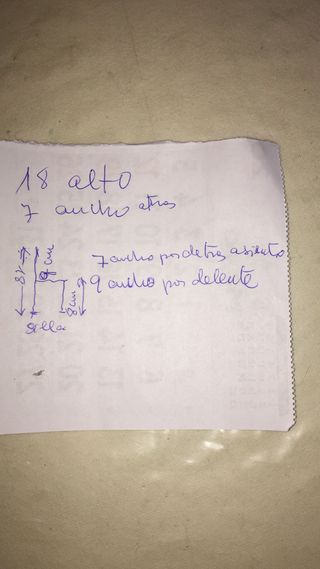 18 alto
7 ancho atras
7 ancho por detras asiento
9 ancho por delante
18
9 cm
8 cm
silla